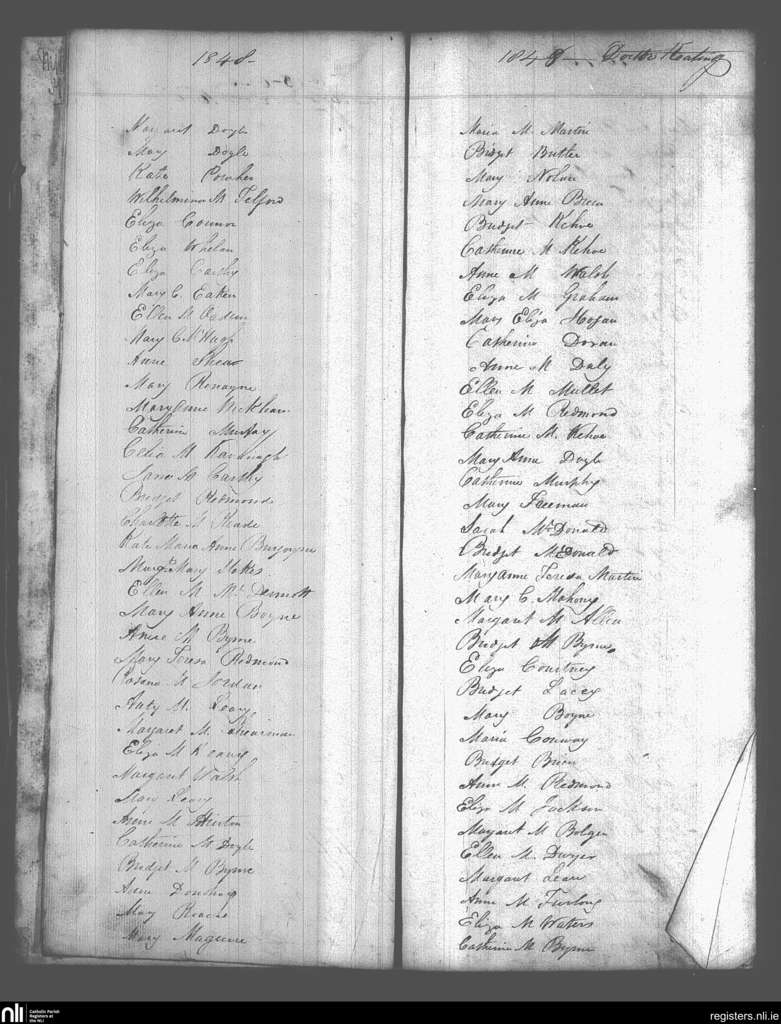 1848
Margaret Doyle
Mary Doyle
Kate
Wilhelmina M Telford
Eliza Connor
Eliza Whelan
Eliza Carthy
Mary C. Eaken
Ellen M
Mary C.
Anne Shea
Mary Ronayne
Mary Anne Wickham
Catherine Murphy
Celia M Kavanagh
M Carthy
Bridget Redmond
Charlotte M Meade
Kate Maria Anne Burgoyne
Margt Mary Stokes
Ellen M McDermott
Mary Anne Boyne
Anne M Byrne
Mary Teresa Redmond
M Jordan
Anty M. Leary
Margaret M.
Eliza M Keary
Margaret Walsh
Mary Leary
Anne M
Catherine M Doyle
Bridget M Byrne
Anne Donohoe
Mary Roache
Mary Maguire
1848 Doctor Keating
Maria M. Martin
Bridget Butler
Mary Nolan
Mary Anne Brien
Bridget Kehoe
Catherine M Kehoe
Anne M Walsh
Eliza M Graham
Mary Eliza Hogan
Catherine Doran
Anne M Daly
Ellen M Mullet
Eliza M Redmond
Catherine M. Kehoe
Mary Anne Doyle
Catherine Murphy
Mary Freeman
Sarah McDonald
Bridget McDonald
Mary Anne Teresa Martin
Mary C. Mahony
Margaret M Allen
Bridget M Byrne
Eliza Courtney
Bridget Lacey
Mary Boyne
Maria Conway
Bridget Brien
Anne M. Redmond
Eliza M Jackson
Margaret M Bolger
Ellen M. Dwyer
Margaret Leary
Anne M Furlong
Eliza M Waters
Catherine M. Byrne
nli Catholic Parish
Registers at
the NLI
registers.nli.ie